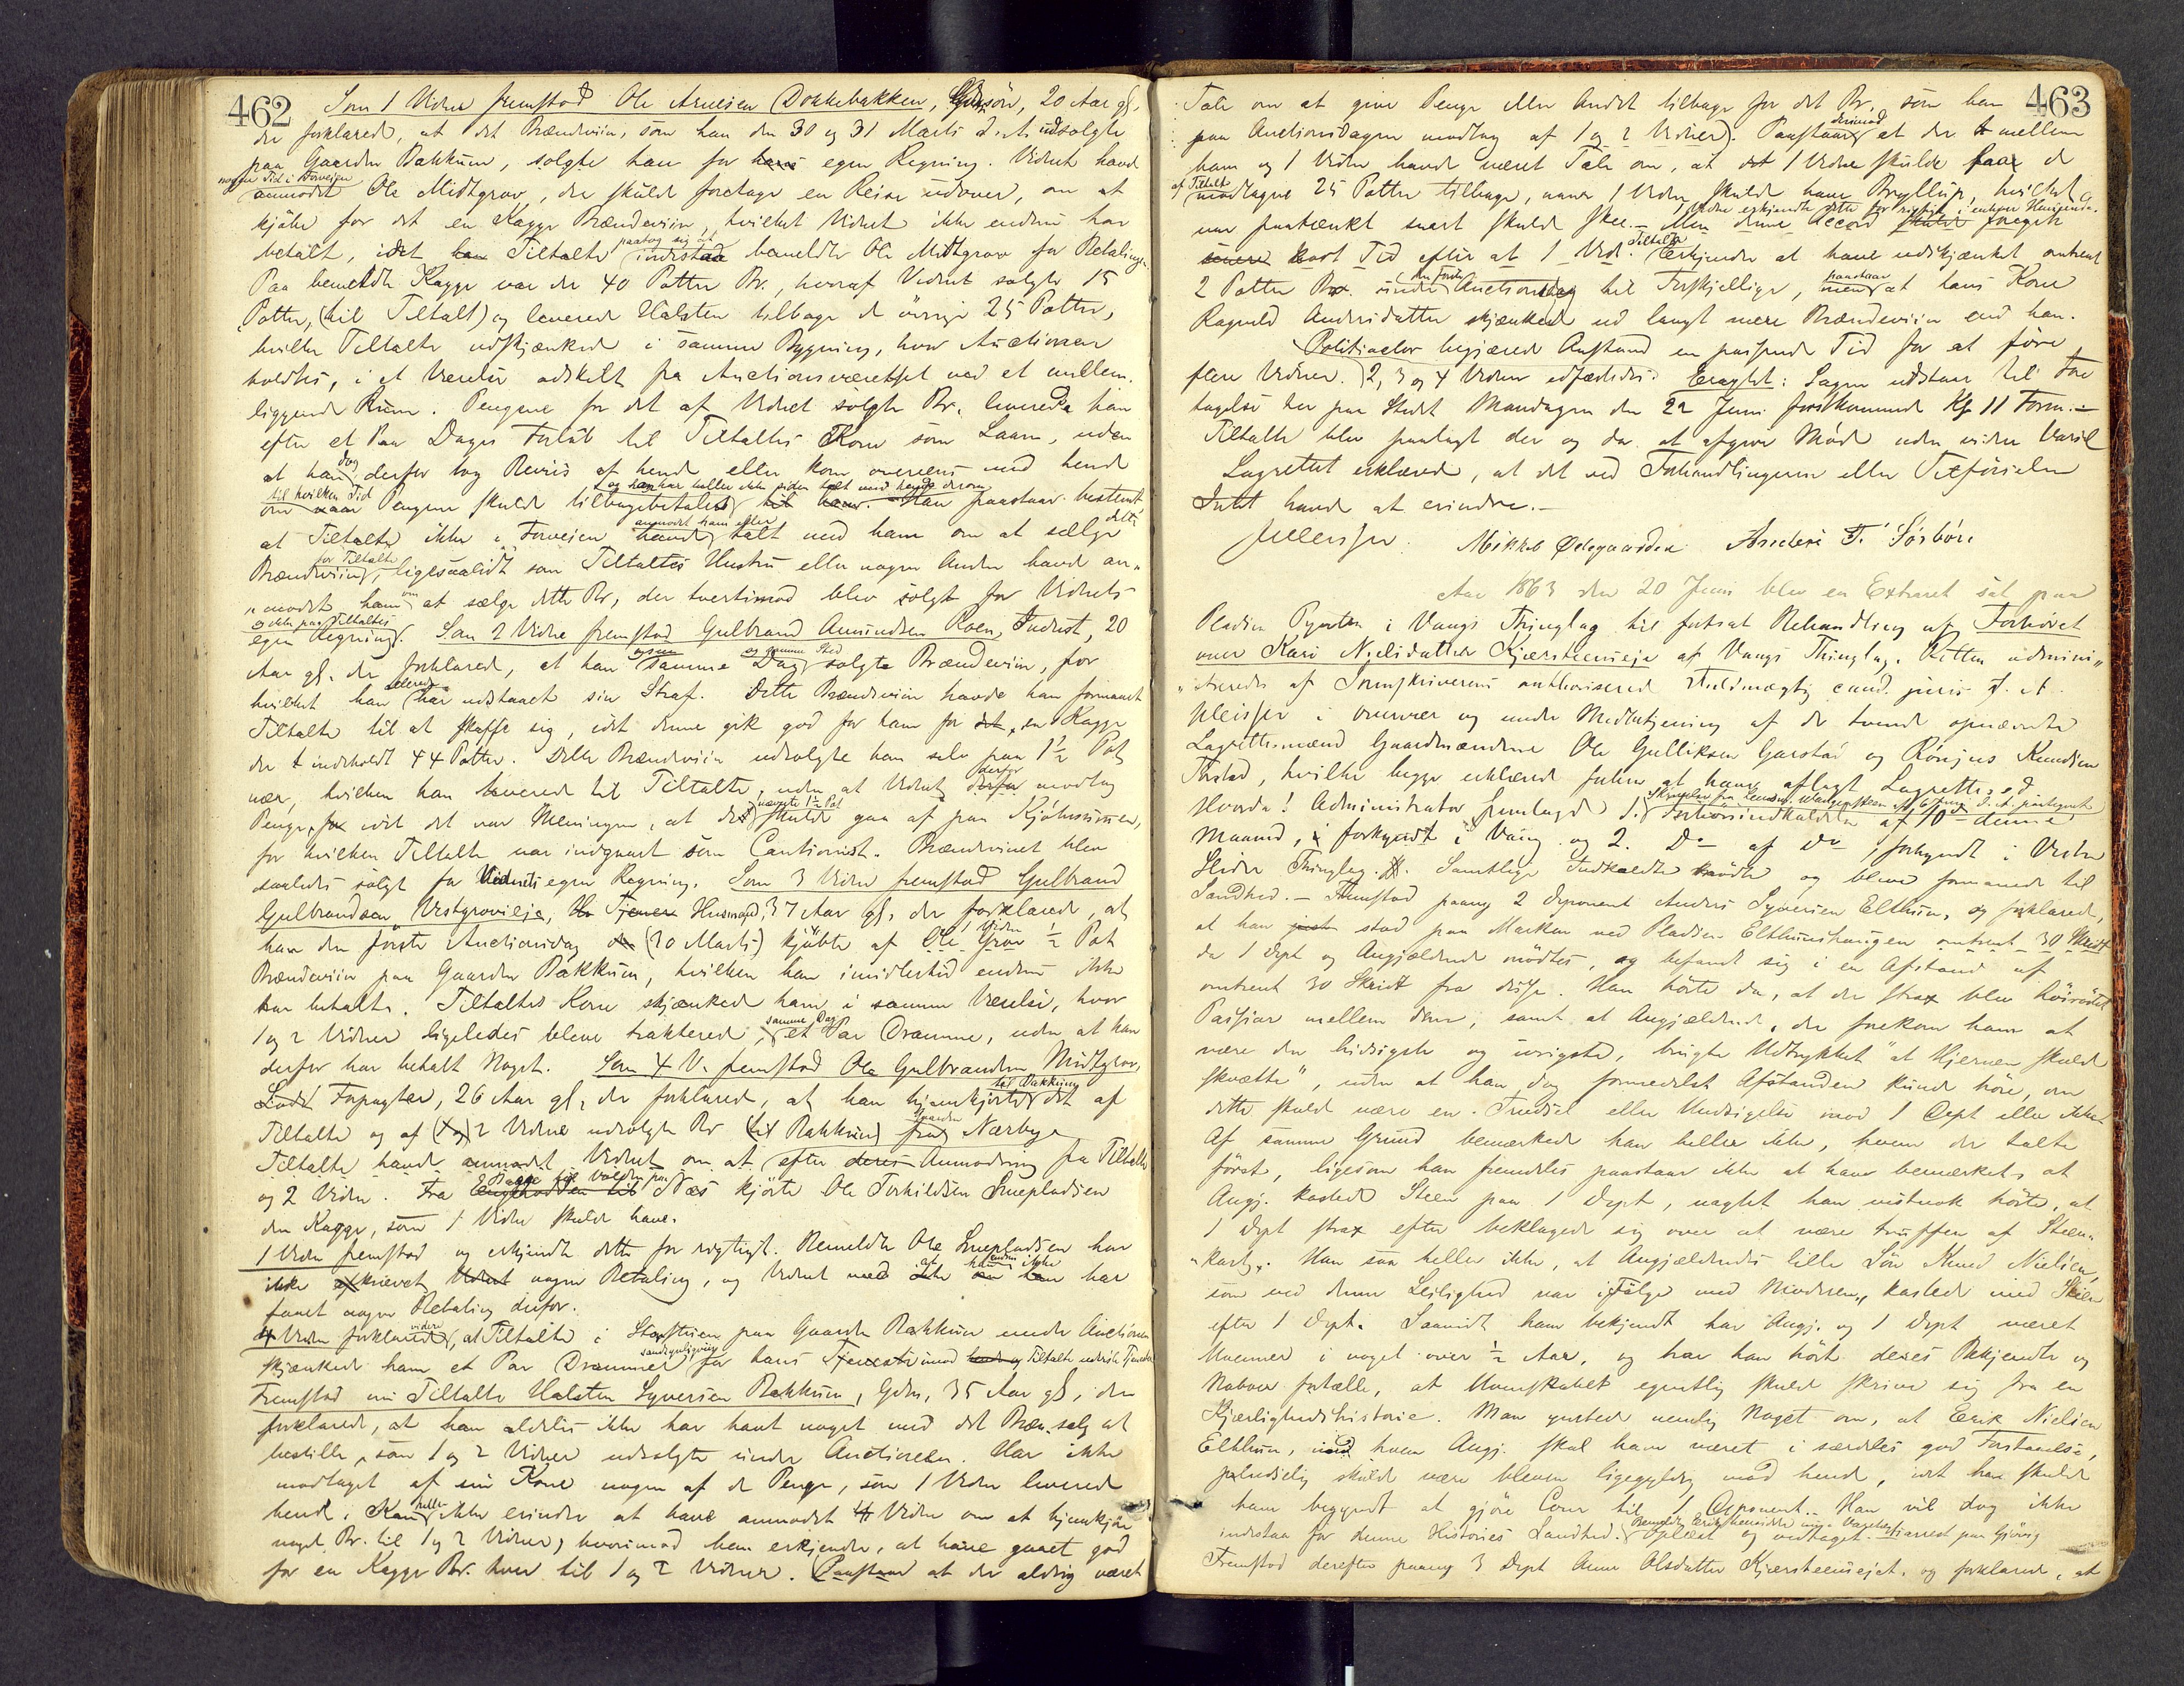 462
Som 1 Vidne fremstod Ole Arnesen Dokkebakken, Gdssön, 20 Aar gl.
der forklarede, at det Brændeviin, som han den 30 og 31 Marts d. A. udsolgte
paa Gaarden Bakkum, solgte han for hans egen Regning. Vidnet havde
nogen Tid i Forveien
anmodet Ole Midtgrov, der skulde foretage en Reise udover, om at
kjöbe for det en Kagge Brændeviin, hvilket Vidnet ikke endnu har
betalt, idet han Tiltalte paatog sig at indestaae bemeldte Ole Midtgrov for Betalingen.
Paa bemeldte Kagge var der 40 Potter Br., hvoraf Vidnet solgte 15
Potter, (til Tiltalt) og leverede Halsten tilbage de övrige 25 Potter,
hvilke Tiltalte udskjænkede i samme Bygning, hvor Auctionen
holdtes, i et Værelse adskilt fra Auctionsværelset ved et mellem-
liggende Rum. Pengene for det af Vidnet solgte Br. leverede han
efter et Par Dages Forløb til Tiltaltes Kone som Laan, uden
at han dog derfor tog Beviis af hende eller kom overeens med hende
til hvilken Tid og han har heller ikke siden talt med hende derom
om naar Pengene skulde tilbagebetales til ham. Han paastaar bestemt
at Tiltalte ikke i Forveien havde anmodet ham eller talt med ham om at sælge dette
Brændeviin for Tiltalte, ligesaalidt som Tiltaltes Hustru eller nogen Anden havde an-
modet ham om at sælge dette Br, der tvertimod blev solgt for Vidnets
og ikke paa Tiltaltes
egen Regning. Som 2 Vidne fremstod Gulbrand Amundsen Roen, Inderst, 20
Aar gl. der forklarede, at han ogsaa samme Dag og samme Sted solgte Brændeviin, for
hvilket han allerede har udstaaet sin Straf. Dette Brændeviin havde han formaaet
Tiltalte til at skaffe sig, idet denne gik god for ham for det, en Kagge
der indeholdt 44 Potter. Dette Brændeviin udsolgte han selv paa 1½ Pot
nær, hvilken han leverede til Tiltalte, uden at Vidnet derfor modtog
Penge, idet det var Meningen, at de nævnte 1½ Pot skulde gaa af paa Kjøbesummen,
for hvilken Tiltalte var indgaaet som Cautionist. Brændevinet blev
saaledes solgt for Vidnets egen Regning. Som 3 Vidne fremstod Gulbrand
Gulbrandsen Vestgroveie, Husmand, 37 Aar gl., der forklarede, at
han den förste Auctionsdag (30 Marts) kjöbte af 1 Vidne ½ Pot
Brændeviin paa Gaarden Bakkum, hvilken han imidlertid endnu ikke
har betalt. Tiltaltes Kone skjænkede ham i samme Værelse, hvor
1 og 2 Vidner ligeledes bleve trakterede, samme Dag et Par Dramme, uden at han
derfor har betalt Noget. Som 4 V. fremstod Ole Gulbrandsen Midtgrov,
Forpagter, 26 Aar gl, der forklarede, at han hjemkjørte til Bakkum det af
Tiltalte og af 2 Vidne udsolgte Br (til Bakkum) fra Gaarden Nærbye
Tiltalte havde anmodet Vidnet om at efter Anmodning fra Tiltalte
og 2 Vidne. Fra Næs kjörte Ole Torkildsen Snepladsen
den Kagge, som 1 Vidne skulde have.
1 Vidne fremstod og erkjendte dette for rigtigt. Bemeldte Ole Snepladsen har
ikke afkrævet Vidnet nogen Betaling, og Vidnet veed at han endnu ikke har
faaet nogen Betaling derfor.
4 Vidne forklarede videre, at Tiltalte i Storstuen paa Gaarden Bakkum under Auctionen
skjænkede ham et Par Dramme for hans
Fremstod nu Tiltalte Halsten Syversen Bakkum, Gdm, 35 Aar gl, der
forklarede, at han aldeles ikke har havt noget med det Bræn.salg at
bestille, som 1 og 2 Vidner udsolgte under Auctionen. Har ikke
modtaget af sin Kone nogen af de Penge, som 1 Vidne leverede
hende. Kan heller ikke erindre at have anmodet 4 Vidne om at hjemkjöre
noget Br. til 1 og 2 Vidner, hvorimod han erkjender, at have gaaet god
for en Kagge Br. hver til 1 og 2 Vidner. (Paastaar at der aldrig været
463
Tale om at give Penge eller Andet tilbage for det Br. som han
paa Auctionsdagen modtog af 1 og 2 Vidner). Paastaar derimod at der mellem
ham og 1 Vidne havde været Tale om, at 1 Vidne skulde faae de
af Tiltalt
modtagne 25 Potter tilbage, naar 1 Vidne skulde have Bryllup, hvilket
var paatænkt snart skulde skee. 1 Vidne erkjendte dette for rigtigt i enhver Henseende. Men denne Accord skulde foregik
kort Tid efter at 1 Vid. Tiltalte Erkjender at have udskjænket omtrent
2 Potter Br. den förste Auctionsdag til Forskjellige, men paastaar at hans Kone
Ragnild Andersdatter skjænkede ud langt mere Brændeviin end han.
Politiactor begjærede Anstand en passende Tid for at före
flere Vidner. 2, 3 og 4 Vidner edfæstedes. Eragtet: Sagen udstaar til Fore
tagelse her paa Stedet Mandagen den 22 Juni förstkommende Kl 11 Form. -
Tiltalte blev paalagt der og da at afgive Möde uden videre Varsel
Lagrettet erklærede, at det ved Forhandlingerne eller Tilførselen
Intet havde at erindre. -
Mikkel Ødegaarden Anders T. Sørbøen
Aar 1863 den 20 Juni blev en Extraret sat paa
Pladsen Pynten i Vangs Thinglag til fortsat Behandling af Forhøret
over Kari Nielsdatter Kjærsteenseje af Vangs Thinglag. Retten admini-
streredes af Sorenskriverens authoriserede Fuldmægtig cand. juris J. A.
i Overvær og under Medbetjening af de tvende opnævnte
Lagrettesmænd Gaardmændene Ole Gulliksen Garstad og Rönjus Knudsen
Thistad, hvilke begge erklærede forhen at have aflagt Lagrettesed
Hvorda! Administrator fremlagde 1. Forhørsindkaldelse af 10de denne
Maaned, forkyndt i Vang og 2. Do af Do, forkyndt i Vestre
Slidre Thinglag. Samtlige Indkaldte mødte og bleve formanede til
Sandhed. - Fremstod paany 2 Deponent Anders Syversen Elthun, og forklarede,
at han stod paa Marken ved Pladsen Elthunshaugen omtrent 30 Skridt
da 1 Dept og Angjældende mödtes, og befandt sig i en Afstand af
omtrent 30 Skridt fra disse. Han hörte da, at der strax blev höirøstet
Passiar mellem dem, samt at Angjældende, der forekom ham at
være den hidsigste og ivrigste, brugte Udtrykket "at Hjernen skulde
skvætte", uden at han dog formedelst Afstanden kunde höre, om
dette skulde være en Trudsel eller Undsigelse mod 1 Dept eller ikke.
Af samme Grund bemærkede han heller ikke, hvem der talte
först, ligesom han fremdeles paastaar ikke at have bemærket, at
Angj. kastede Steen paa 1 Dept, uagtet han vistnok hörte, at
1 Dept strax efter beklagede sig over at være truffen af Steen-
kast. Han saa heller ikke, at Angjældendes lille Sön Knud Nielsen,
som ved denne Leilighed var i Fölge med Moderen, kastede med Steen
efter 1 Dept. Saavidt ham bekjendt har Angj. og 1 Dept været
Uvenner i noget over ½ Aar, og har han hört deres Bekjendte og
Naboer fortælle, at Uvenskabet egentlig skulde skrive sig fra en
Kjærlighedshistorie. Man ymtede nemlig Noget om, at Erik Nielsen
Elthun, med hvem Angj. skal have været i særdeles god Forstaaelse,
pludselig skulde være bleven ligegyldig mod hende, idet han skulde
have begyndt at gjöre Cour til 1 Deponent. Han vil dog ikke
indestaa for denne Histories Sandhed. Oplæst og vedtaget.
Fremstod derefter paany 3 Dept Anne Olsdatter Kjærsteensejet, og forklarede, at